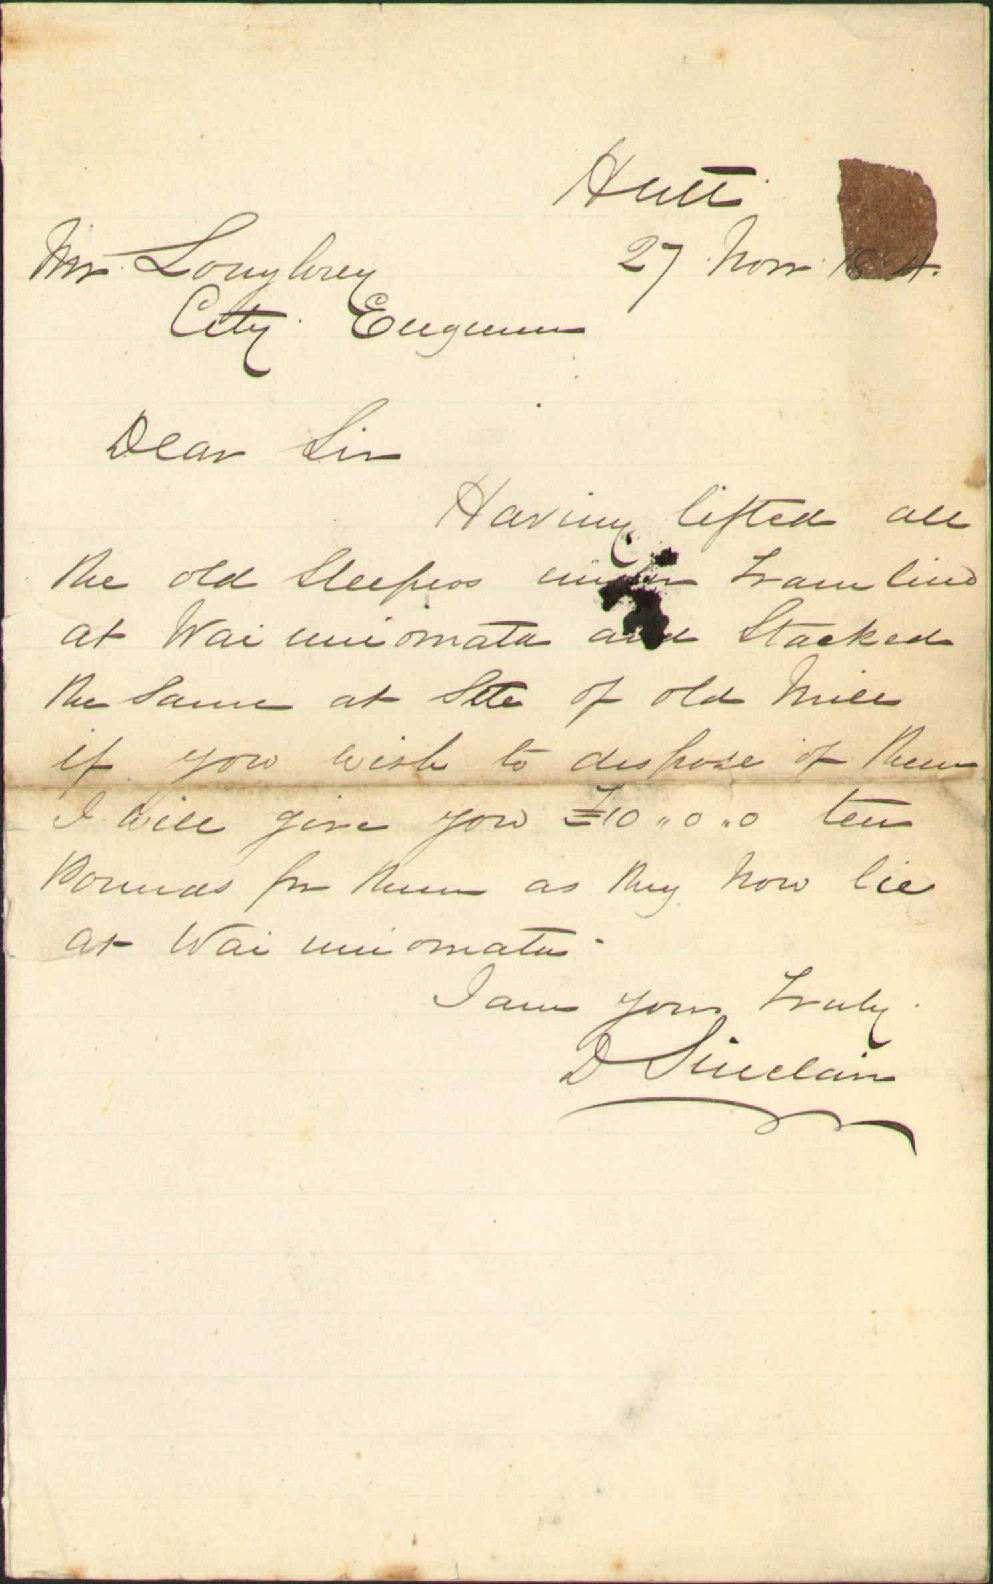 Hutt
27 Novr 184.
Mr. Loughrey
City Engineer
Dear Sir
Having lifted all
the old Sleepers under tram line
at Wai nui omata and Stacked
the Same at Site of old Mill
if you wish to dispose of them
I will give you £10 ,, 0 ,, 0 ten
Pounds for them as they now lie
at Wai nui omata.
I am yours truly
D Sinclair